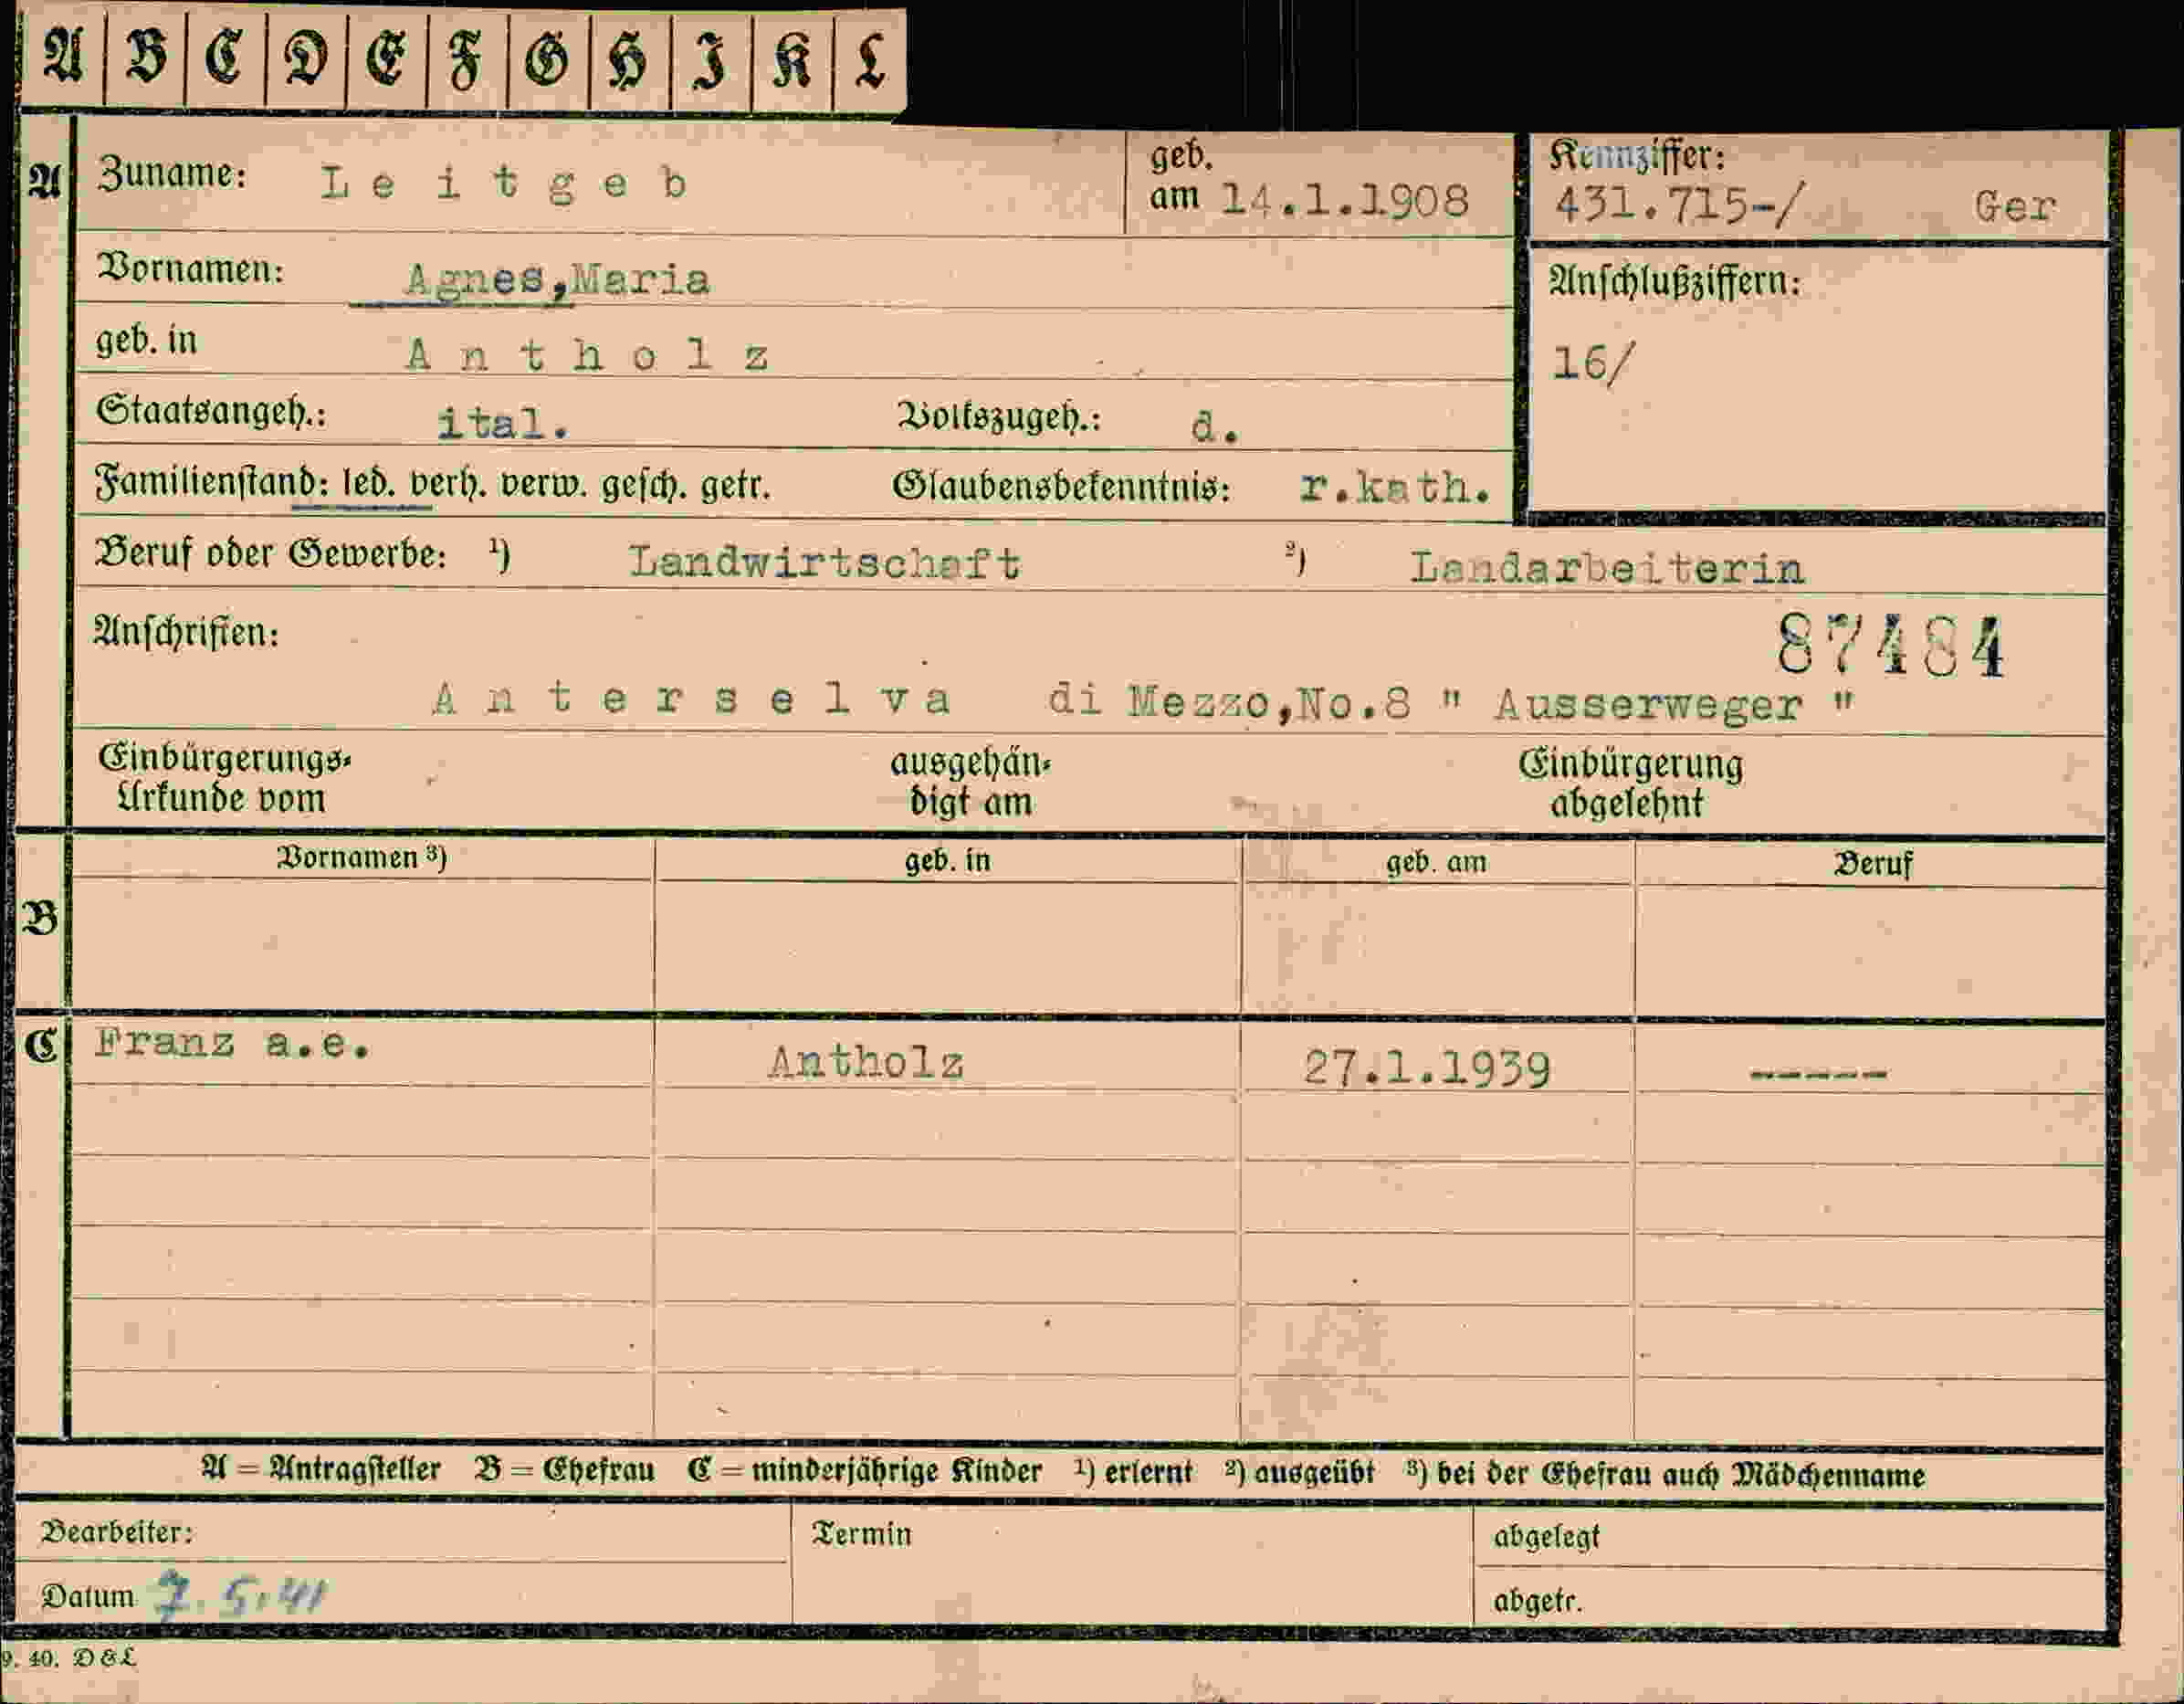 A B C D E F G H I K L
A Zuname: Leitgeb geb. am 14.1.1908 Kennziffer: 431.715-/ Ger
Vornamen: Agnes,Maria Anschlußziffern:
geb. in Antholz 16/
Staatsangeh.: ital. Volkszugeh.: d.
Familienstand: led. verh. verw. gesch. getr. Glaubensbekenntnis: r.kath.
Beruf oder Gewerbe: ¹) Landwirtschaft ²) Landarbeiterin
Anschriften: 87484
Anterselva di Mezzo,No.8 " Ausserweger "
Einbürgerungs- ausgehän- Einbürgerung
Urkunde vom digt am abgelehnt
Vornamen ³) geb. in geb. am Beruf
B
C Franz a.e. Antholz 27.1.1939 -----
A = Antragsteller B = Ehefrau C = minderjährige Kinder ¹) erlernt ²) ausgeübt ³) bei der Ehefrau auch Mädchenname
Bearbeiter: Termin abgelegt
Datum 7. 5. 41 abgetr.
9. 40. D & L